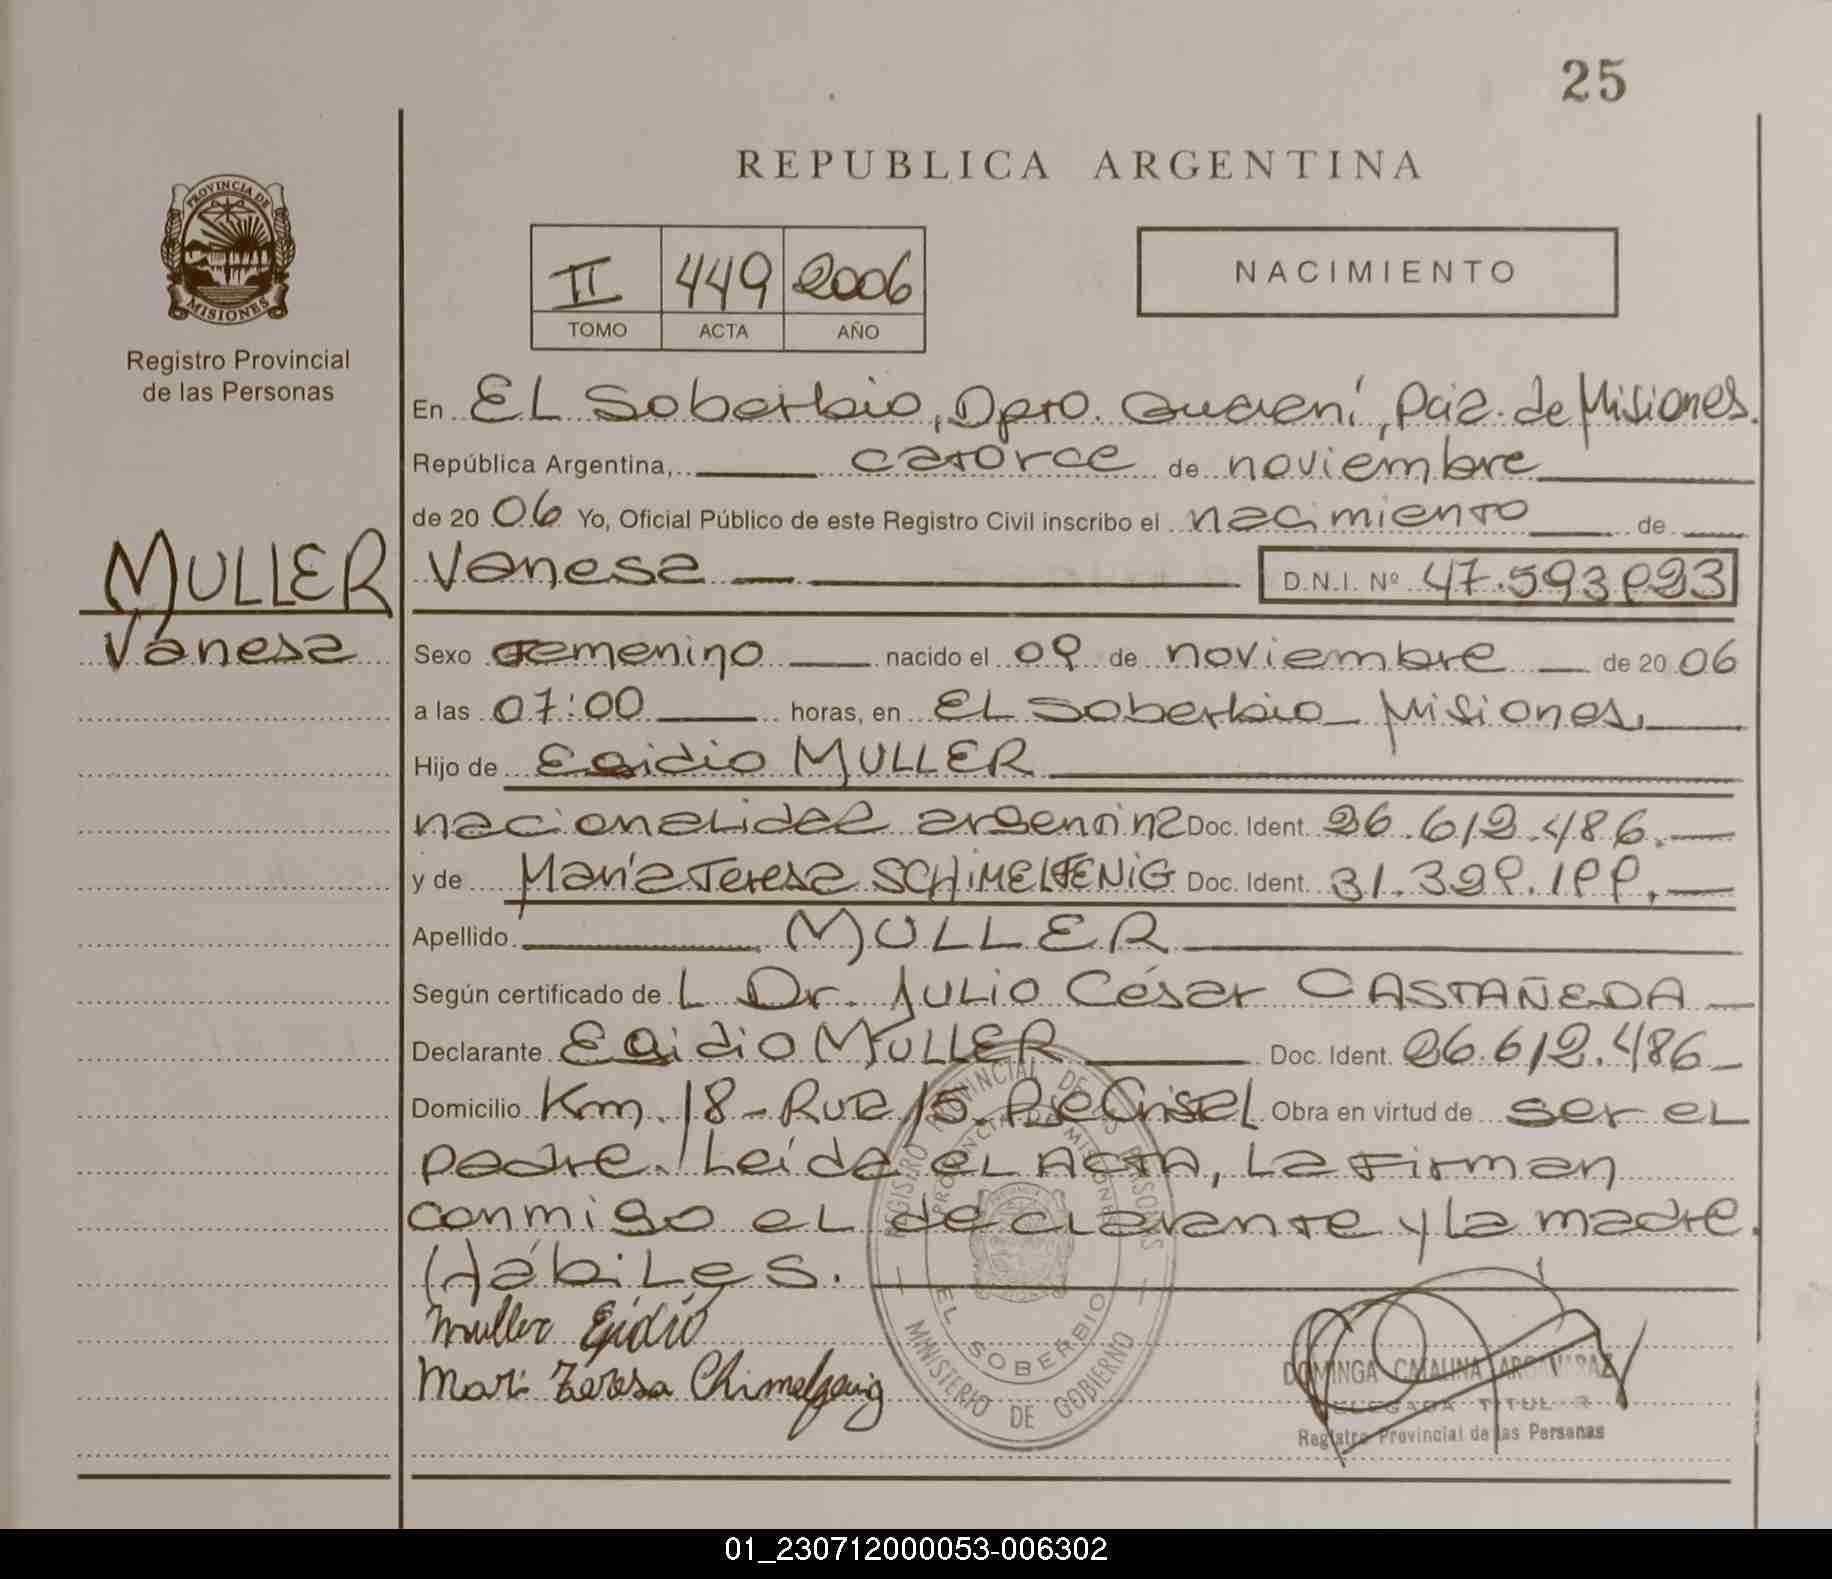 25
REPUBLICA ARGENTINA
PROVINCIA DE
MISIONES
Registro Provincial
de las Personas
II 449 2006
TOMO ACTA AÑO
NACIMIENTO
En EL Soberbio, Dpto. Guaraní, Pcia. de Misiones.
República Argentina, catorce de noviembre
de 20 06 Yo, Oficial Público de este Registro Civil inscribo el nacimiento de
MULLER
Vanesa
Vanesa D.N.I. Nº 47.593
Sexo Femenino nacido el 09 de noviembre de 20 06
a las 07:00 horas, en EL Soberbio - Misiones.
Hijo de Egidio MULLER
nacionalidad argentina Doc. Ident. 26.612.486.
y de María Teresa SCHiMELFENiG Doc. Ident. 31.329.199.
Apellido MULLER
Según certificado de L Dr. Julio César CASTAÑEDA
Declarante Egidio MULLER Doc. Ident. 26.612.486
Domicilio Km. 18 - Ruta 15. Obra en virtud de ser el
padre. Leída el ACTA, La firman
conmigo el declarante y La madre.
Hábiles.
Muller Egidio
Mari Teresa Chimelfenig
REGISTRO PROVINCIAL DE LAS PERSONAS
PROVINCIA DE MISIONES
EL SOBERBIO
MINISTERIO DE GOBIERNO
DOMINGA CATALINA
DELEGADA TITULAR
Registro Provincial de las Personas
01_230712000053-006302